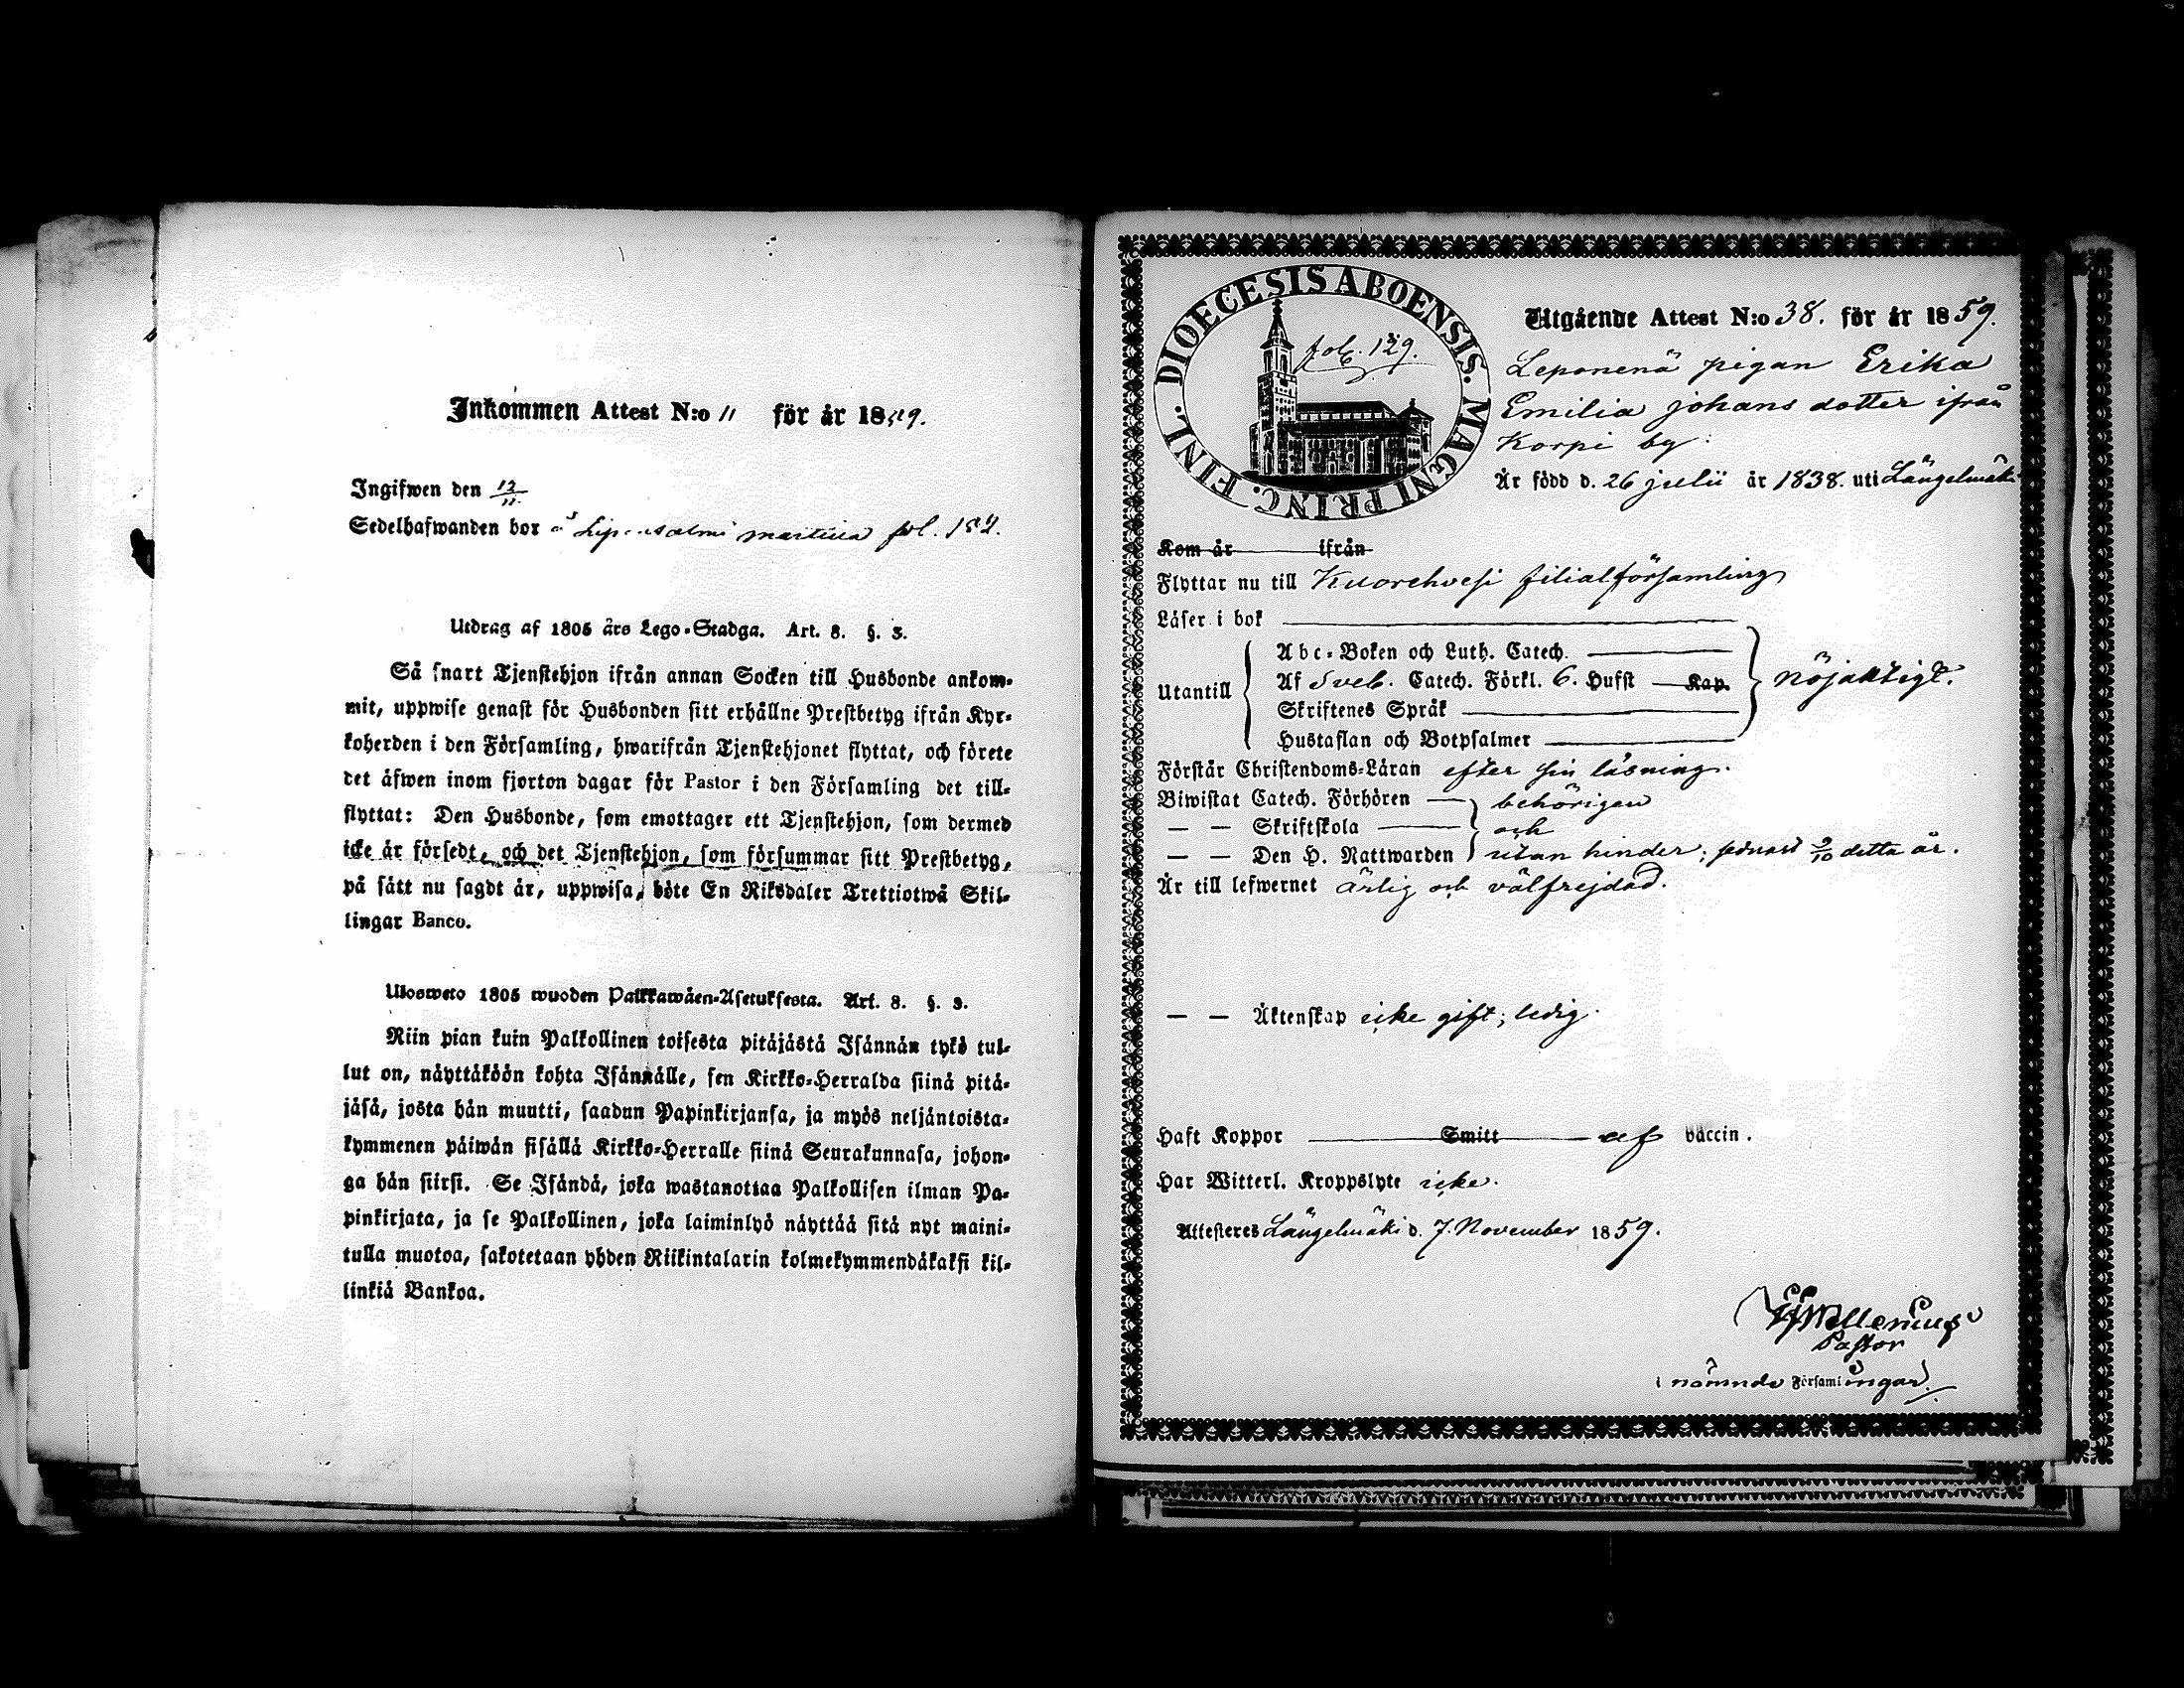 Inkommen Attest N:o 11 för år 1859.
Ingifwen den 12/11.
Sedelhafwanden bor å martiila fol. 182.
Utdrag af 1805 års Lego-Stadga. Art. 8. §. 3.
Så snart Tjenstehjon ifrån annan Socken till Husbonde ankom-
mit, uppwise genast för Husbonden sitt erhållne Prestbetyg ifrån Kyr-
koherden i den Församling, hwarifrån Tjenstehjonet flyttat, och förete
det äfwen inom fjorton dagar för Pastor i den Församling det till-
flyttat: Den Husbonde, som emottager ett Tjenstehjon, som dermed
icke är försedt, och det Tjenstehjon, som försummar sitt Prestbetyg,
på sätt nu sagdt är, uppwisa, böte En Riksdaler Trettiotwå Skil-
lingar Banco.
Ulosweto 1805 wuoden Palkkawäen-Asetuksesta. Art. 8. §. 3.
Niin pian kuin Palkollinen toisesta pitäjästä Isännän tykö tul-
lut on, näyttäköön kohta Isännälle, sen Kirkko-Herralda siinä pitä-
jäsä, josta hän muutti, saadun Papinkirjansa, ja myös neljäntoista-
kymmenen päiwän sisällä Kirkko-Herralle siinä Seurakunnasa, johon-
ga hän siirsi. Se Isändä, joka wastanottaa Palkollisen ilman Pa-
pinkirjata, ja se Palkollinen, joka laiminlyö näyttää sitä nyt maini-
tulla muotoa, sakotetaan yhden Riikintalarin kolmekymmendäkaksi kil-
linkiä Bankoa.
DIOECESIS ABOENSIS. MAGNI PRINC. FINL.
fol. 129.
Utgående Attest N:o 38. för år 1859.
Leponenä pigan Erika
Emilia johans dotter ifrån
Korpi by.
Är född d. 26 julii år 1838. uti Längelmäki
Kom år ifrån
Flyttar nu till Kuorehvesi filialförsamling
Läser i bok
Utantill
Abc-Boken och Luth. Catech.
Af Sveb. Catech. Förkl. 6. Hufst Kap.
Skriftenes Språk
Hustaflan och Botpsalmer
nöjaktigt.
Förstår Christendoms-Läran efter sin läsning.
Biwistat Catech. Förhören behörigen
— — Skriftskola och
— — Den H. Nattwarden utan hinder; sednast 9/10 detta år.
Är till lefwernet ärlig och välfrejdad.
— — Äktenskap icke gift; ledig.
Haft Koppor Smitt af vaccin.
Har Witterl. Kroppslyte icke.
Attesteres Längelmäki d. 7. November 1859.
Pastor
i nämnde Församlingar.